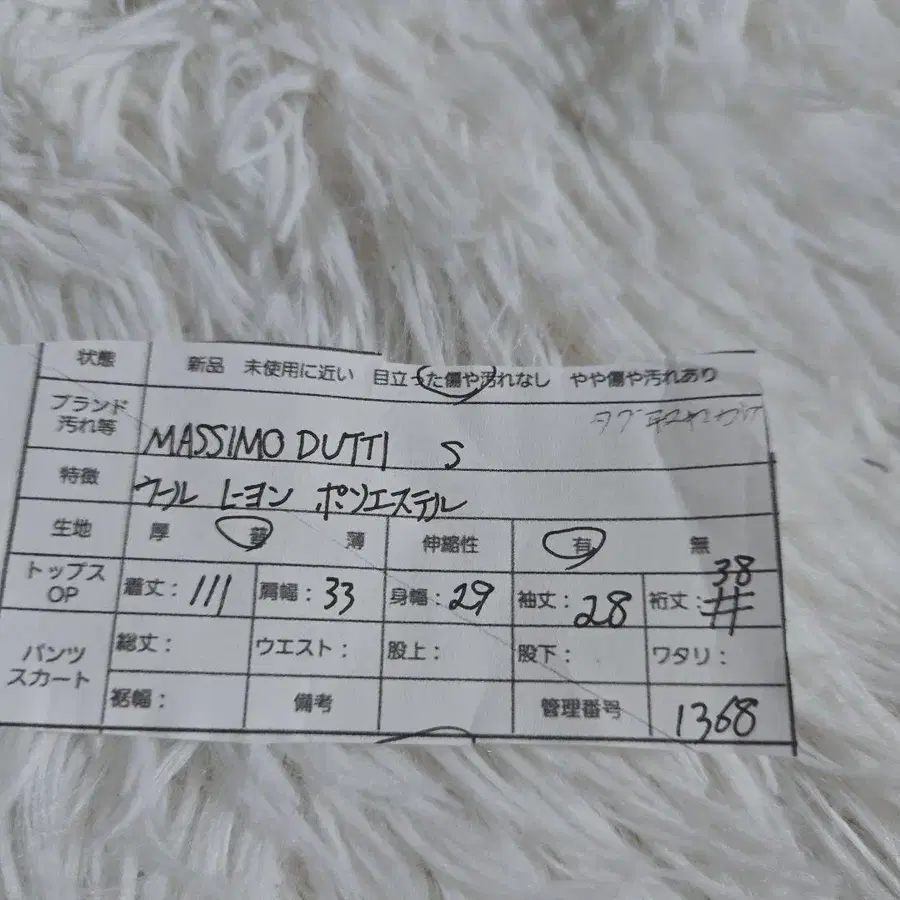 状態 新品 未使用に近い 目立った傷や汚れなし やや傷や汚れあり
ブランド
汚れ等 MASSIMO DUTTI S
特徴 ウール レーヨン ポリエステル
生地 厚 普 薄 伸縮性 有 無
トップス
OP 着丈: 111 肩幅: 33 身幅: 29 袖丈: 28 裄丈: 38
パンツ
スカート 総丈: ウエスト: 股上: 股下: ワタリ:
裾幅: 備考 管理番号 1368